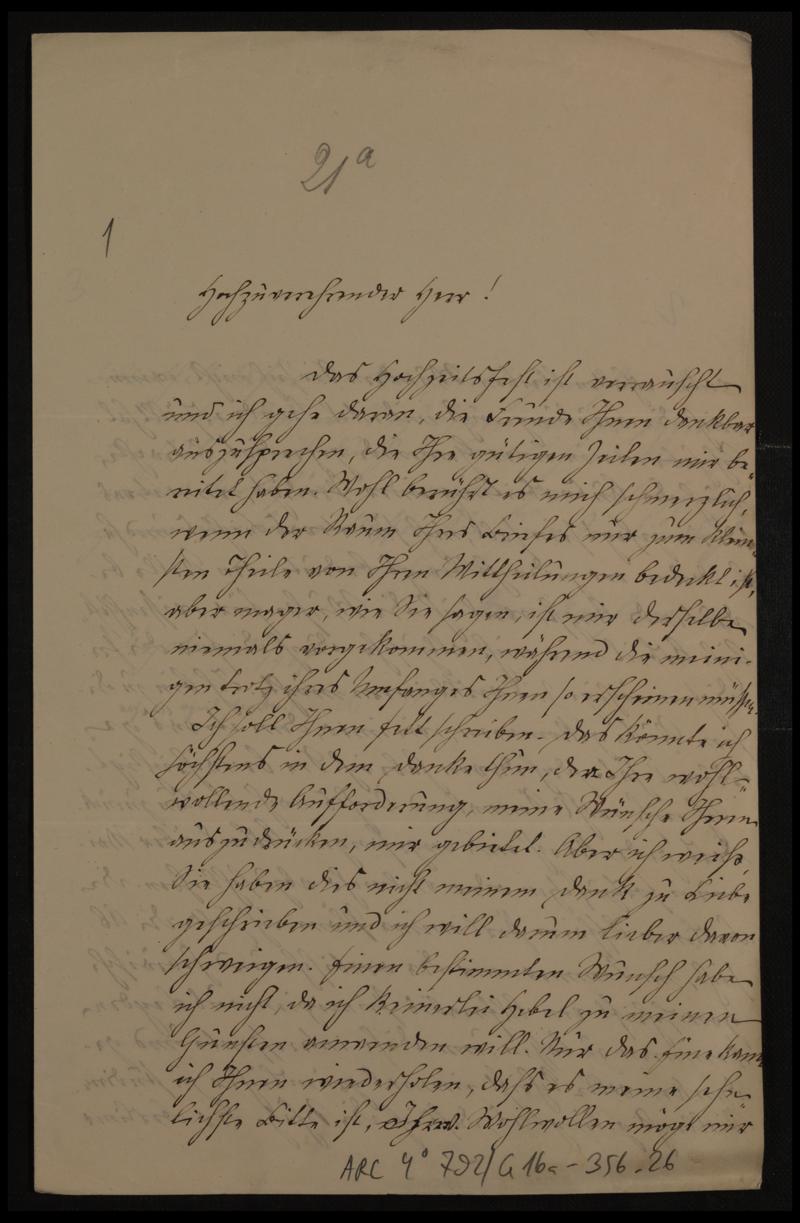 21a
1
Hochzuverehrender Herr!
Das Hochzeitsfest ist verrauscht
und ich gehe daran, die Freude Ihnen dankbar
auszusprechen, die Ihre gütigen Zeilen mir be-
reitet haben. Wohl berührt es mich schmerzlich,
wenn der Raum Ihres Briefes nur zum klein-
sten Theile von Ihren Mittheilungen bedeckt ist,
aber mager, wie Sie sagen, ist mir derselbe
niemals vorgekommen, während die meini-
gen trotz ihres Umfanges Ihnen so erscheinen müssen.
Ich soll Ihnen fett schreiben. Das könnte ich
höchstens in dem Danke thun, den Ihre wohl-
wollende Aufforderung, meine Wünsche Ihnen
auszudrücken, mir gebietet. Aber ich weiß,
Sie haben dies nicht meinem Dank zu Liebe
geschrieben und ich will darum lieber davon
schweigen. Einen bestimmten Wunsch habe
ich nicht, da ich keinerlei Hebel zu meinen
Gunsten anwenden will. Nur das Eine kann
ich Ihnen wiederholen, daß es meine sehn-
lichste Bitte ist, Ihr Wohlwollen möge mir
ARC 4° 792/G 16a-356.26